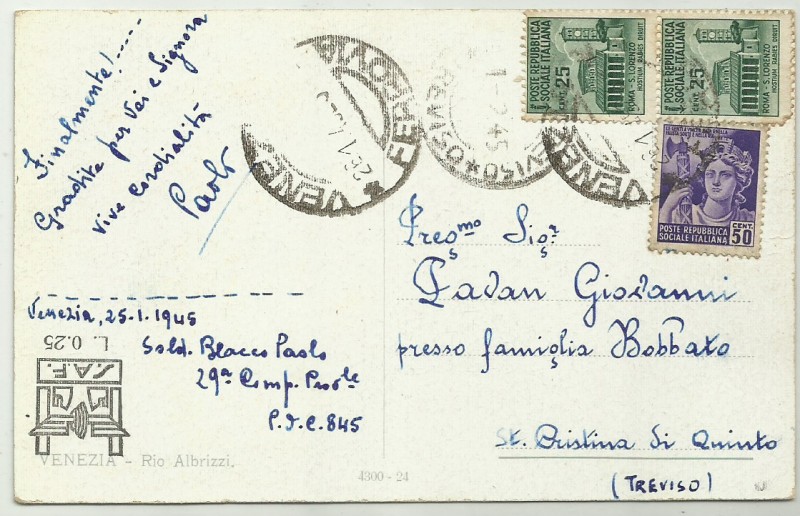 Finalmente!.....
Gradite per Voi e Signora
vive cordialità
Paolo
Venezia, 25-1-1945
Sold. Blacco Paolo
29ª Comp. Prov.le
P.d.C. 845
L. 0.25
S.A.F.
VENEZIA - Rio Albrizzi.
4300 - 24
POSTE REPUBBLICA
SOCIALE ITALIANA
CENT. 25
ROMA - S. LORENZO
HOSTIUM RABIES DIRUIT
POSTE REPUBBLICA
SOCIALE ITALIANA
CENT. 25
ROMA - S. LORENZO
HOSTIUM RABIES DIRUIT
POSTE REPUBBLICA
SOCIALE ITALIANA
CENT.
50
FERROVIA
VENEZ
TREVISO
1-2-45
VENEZ
Preg.mo Sig.r
Pavan Giovanni
presso famiglia Bobbato
St. Cristina di Quinto
(TREVISO)